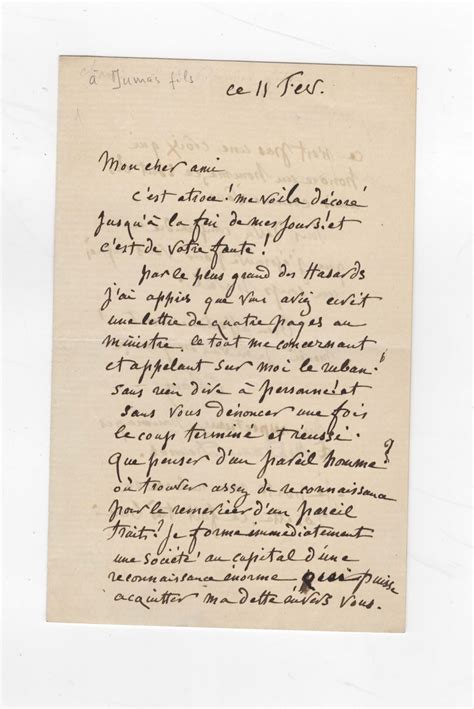 à Dumas fils
ce 11 Fev.
Mon cher ami
c'est atroce! me voila décoré
jusqu'à la fin de mes jours! et
c'est de votre faute!
par le plus grand des Hasards
j'ai appris que vous aviez écrit
une lettre de quatre pages au
ministre. le tout me concernant
et appelant sur moi le ruban!
sans rien dire à personne! et
sans vous dénoncer une fois
le coup terminé et réussi.
Que penser d'un pareil homme?
où trouver assez de reconnaissance
pour le remercier d'un pareil
trait? je forme immédiatement
une Société au capital d'une
reconnaissance énorme qui puisse
acquitter ma dette envers vous.